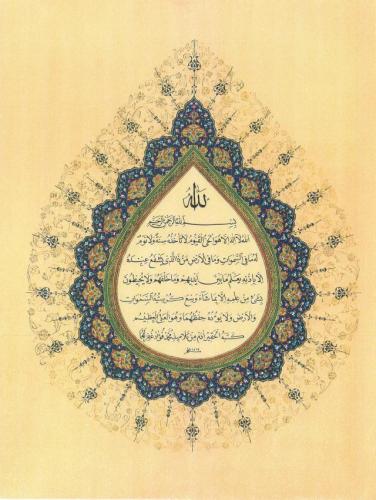 الله
بسم الله الرحمن الرحيم
الله لا اله الا هو الحي القيوم لا تأخذه سنة ولا نوم
له ما في السموات وما في الارض من ذا الذي يشفع عنده
الا باذنه يعلم ما بين ايديهم وما خلفهم ولا يحيطون
بشئ من علمه الا بما شاء وسع كرسيه السموات
والارض ولا يؤده حفظهما وهو العلي العظيم
كتبه الحقير من تلاميذ محمد